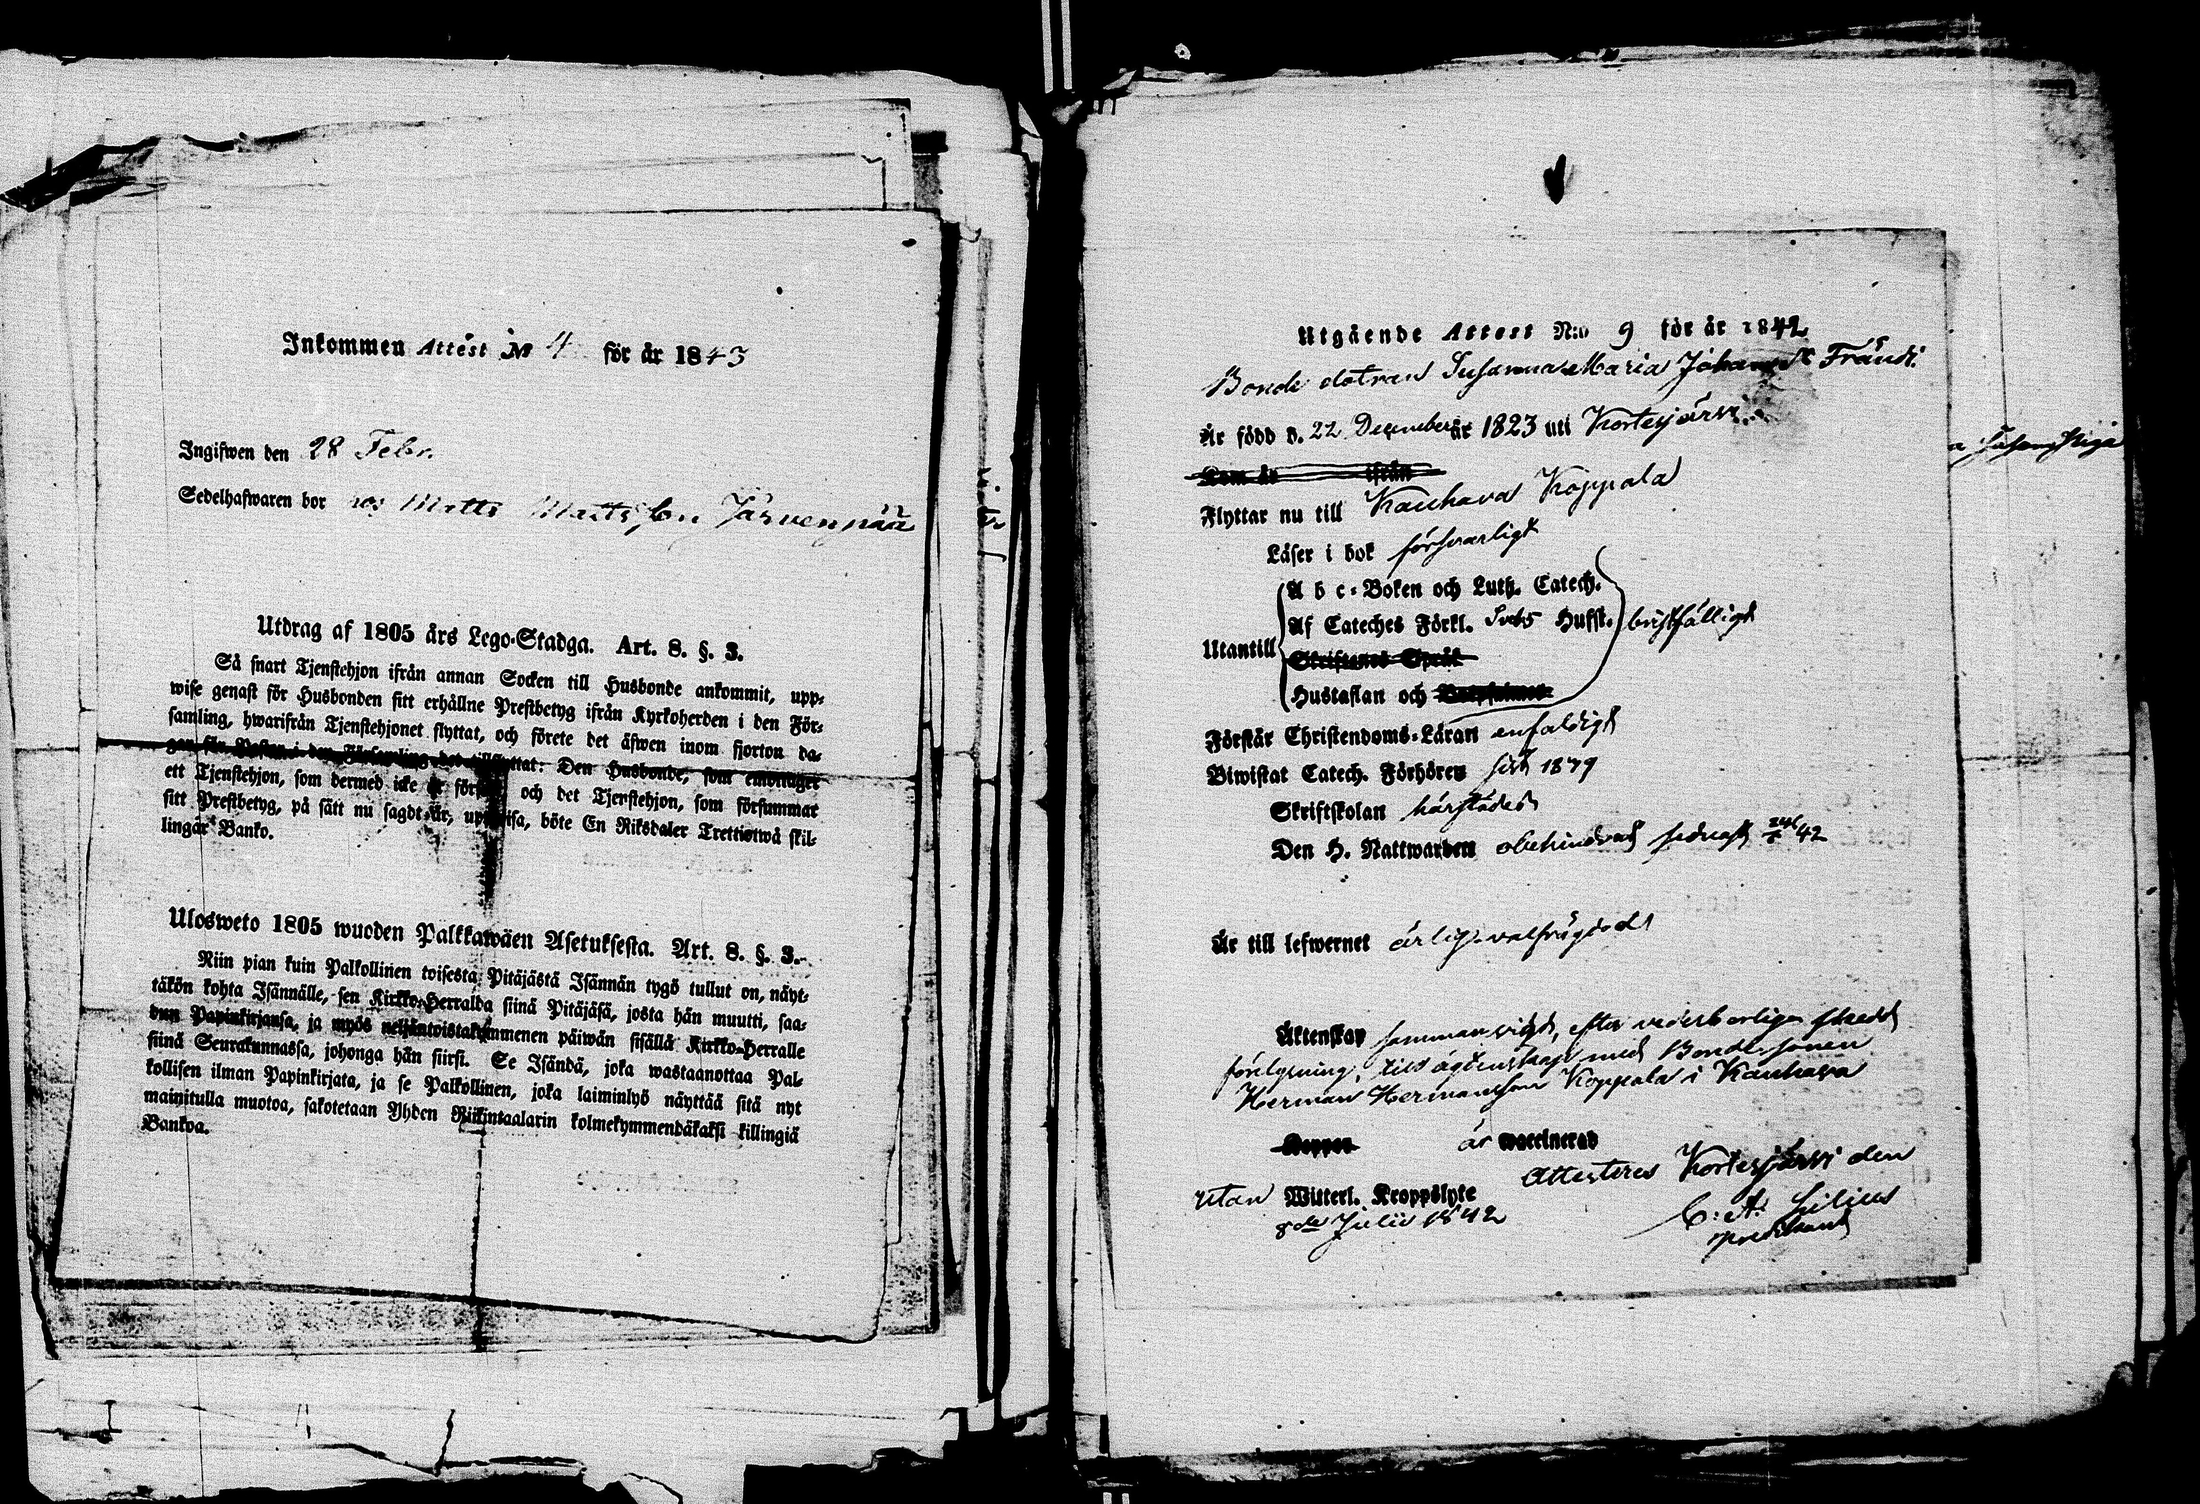 Inkommen Attest № 4 för år 1843
Ingifwen den 28 Febr.
Sedelhafwaren bor hos Matts Mattsson Järvenpää
Utdrag af 1805 års Lego-Stadga. Art. 8. §. 3.
Så snart Tjenstehjon ifrån annan Socken till Husbonde ankommit, upp-
wise genast för Husbonden sitt erhållne Prestbetyg ifrån Kyrkoherden i den För-
samling, hwarifrån Tjenstehjonet flyttat, och förete det äfwen inom fjorton da-
gar för Presten i den Församling det tillflyttat: Den Husbonde, som emottager
ett Tjenstehjon, som dermed icke är försedt, och det Tjenstehjon, som försummar
sitt Prestbetyg, på sätt nu sagdt är, uppwisa, böte En Riksdaler Trettiotwå skil-
lingar Banko.
Ulosweto 1805 wuoden Palkkawäen Asetuksesta. Art. 8. §. 3.
Niin pian kuin Palkollinen toisesta Pitäjästä Isännän tygö tullut on, näyt-
täkön kohta Isännälle, sen Kirkko-Herralda siinä Pitäjäsä, josta hän muutti, saa-
dun Papinkirjansa, ja myös neljäntoistakymmenen päiwän sisällä Kirkko-Herralle
siinä Seurakunnassa, johonga hän siirsi. Se Isändä, joka wastaanottaa Pal-
kollisen ilman Papinkirjata, ja se Palkollinen, joka laiminlyö näyttää sitä nyt
mainitulla muotoa, sakotetaan Yhden Riikintaalarin kolmekymmendäkaksi killingiä
Bankoa.
Utgående Attest N:o 9 för år 1842
Bonde dotran Susanna Maria Johansdr Frändi
Är född d. 22 December år 1823 uti Kortesjärvi
Kom år ifrån
Flyttar nu till Kauhava Koppala
Läser i bok försvarligt
Utantill
A b c-Boken och Luth. Catech.
Af Cateches Förkl. Sv Huffst.
bristfälligt
Skriftenes Språk
Hustaflan och Botpsalmer
Förstår Christendoms-Läran enfaldigt
Biwistat Catech. Förhören sist
Skriftskolan härstädes
Den H. Nattwarden obehindrad sednast 42
Är till lefwernet ärlig välfrägdad
Äktenskap sammanvigd, efter vederbörligen skedd
förelysning, till ägtenskap med Bonde sonen
Herman Hermansson Koppala i Kauhava
Koppor är waccinerad
Attesteres Kortesjärvi den
utan Witterl. Kroppslyte
8de Julii 1842
C: A: Lilius
predikant